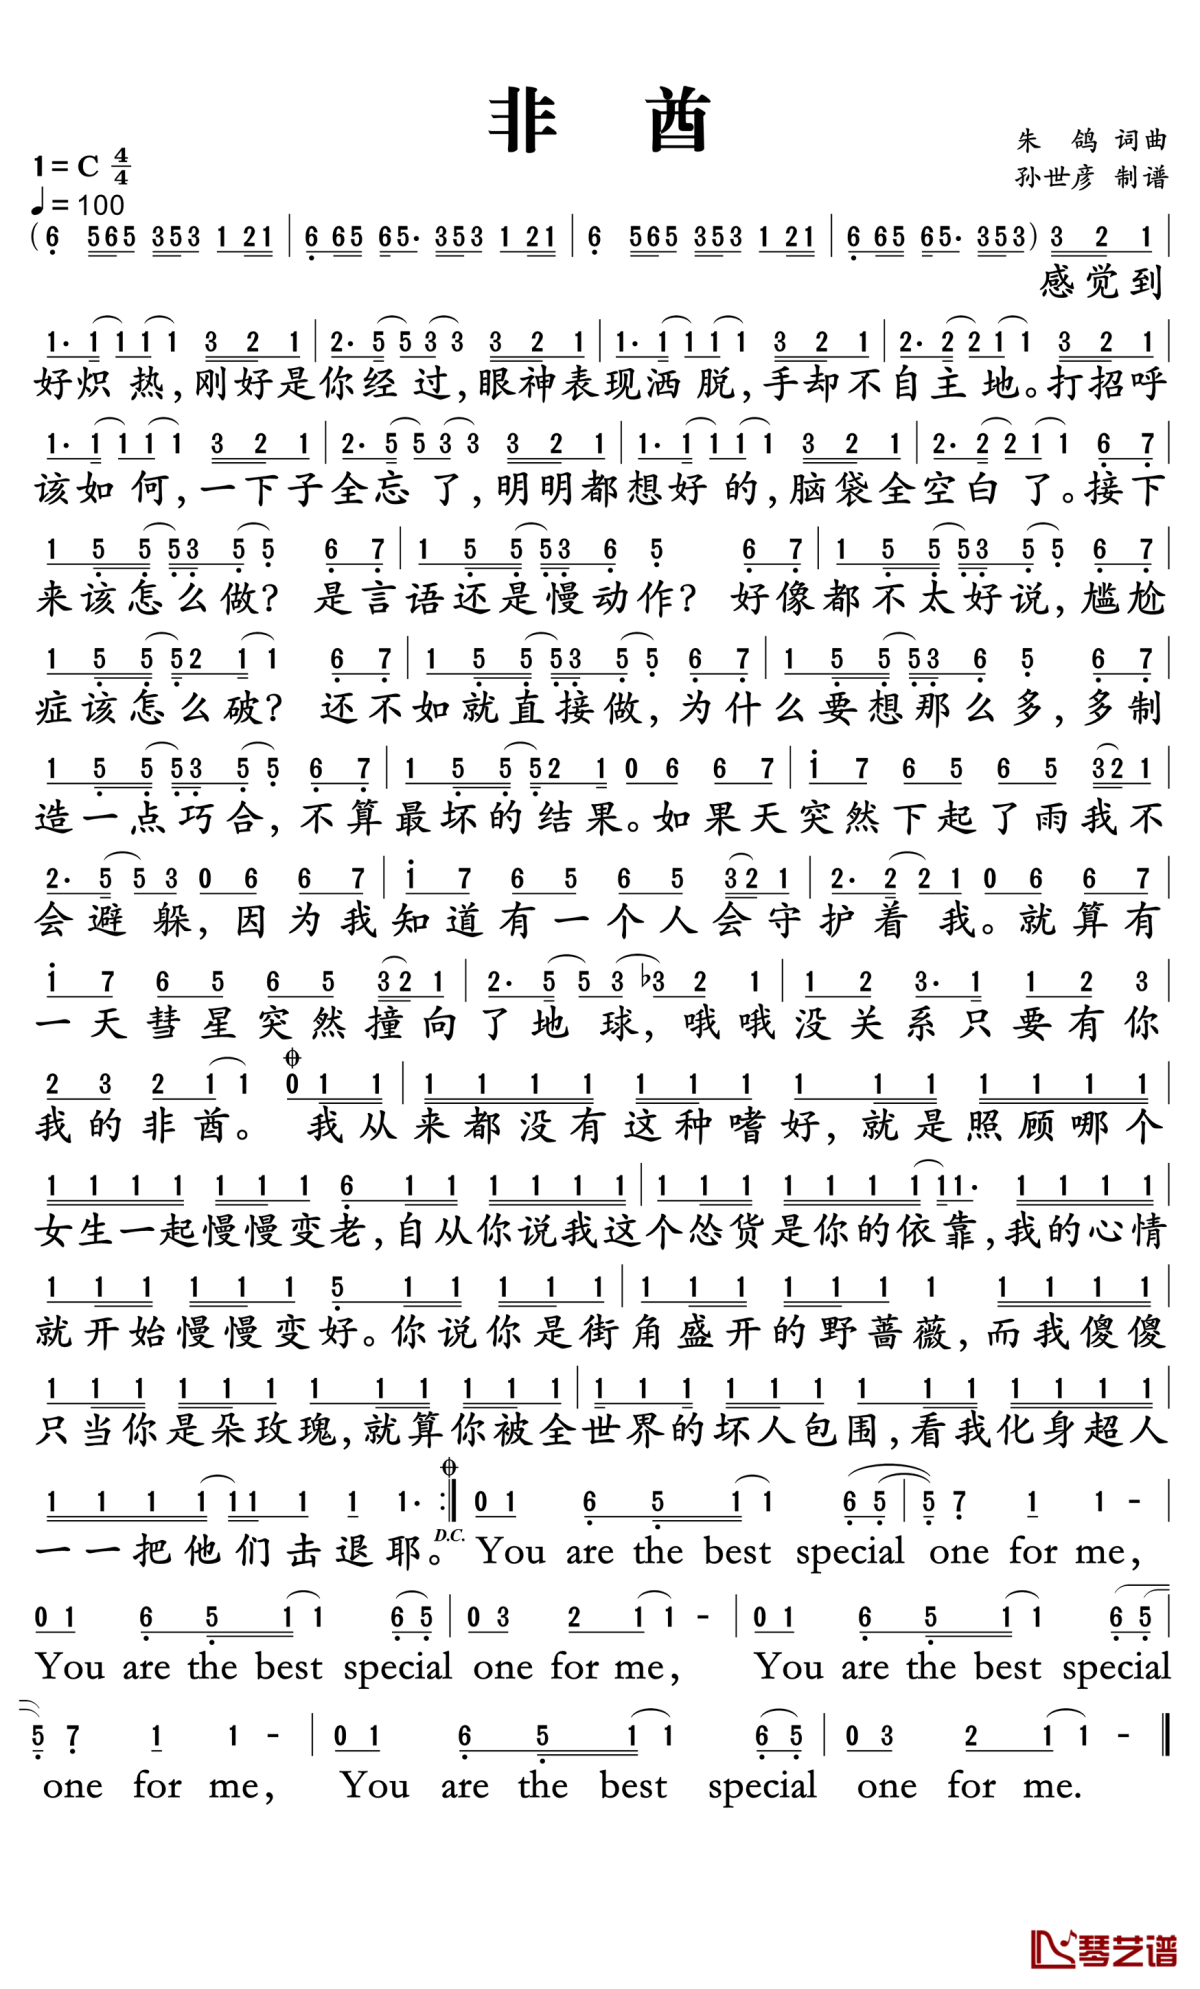 非 酋
朱 鸽 词曲
孙世彦 制谱
1=C 4/4
♩=100
(6 565 353 1 21 | 6 65 65· 353 1 21 | 6 565 353 1 21 | 6 65 65· 353) 3 2 1 |
感觉到
1· 1 1 1 1 3 2 1 | 2· 5 5 3 3 3 2 1 | 1· 1 1 1 1 3 2 1 | 2· 2 2 1 1 3 2 1 |
好炽热,刚好是你经过,眼神表现洒脱,手却不自主地。打招呼
1· 1 1 1 1 3 2 1 | 2· 5 5 3 3 3 2 1 | 1· 1 1 1 1 3 2 1 | 2· 2 2 1 1 6 7 |
该如何,一下子全忘了,明明都想好的,脑袋全空白了。接下
1 5 5 53 5 5 6 7 | 1 5 5 53 6 5 6 7 | 1 5 5 53 5 5 6 7 |
来该怎么做?是言语还是慢动作?好像都不太好说,尴尬
1 5 5 52 1 1 6 7 | 1 5 5 53 5 5 6 7 | 1 5 5 53 6 5 6 7 |
症该怎么破?还不如就直接做,为什么要想那么多,多制
1 5 5 53 5 5 6 7 | 1 5 5 52 1 0 6 6 7 | i 7 6 5 6 5 32 1 |
造一点巧合,不算最坏的结果。如果天突然下起了雨我不
2· 5 5 3 0 6 6 7 | i 7 6 5 6 5 32 1 | 2· 2 2 1 0 6 6 7 |
会避躲,因为我知道有一个人会守护着我。就算有
i 7 6 5 6 5 32 1 | 2· 5 5 3 ♭3 2 1 | 1 2 3· 1 1 2 3 |
一天彗星突然撞向了地球,哦哦没关系只要有你
2 3 2 1 1 0 1 1 | 1 1 1 1 1 1 1 1 1 1 1 1 1 1 |
我的非酋。我从来都没有这种嗜好,就是照顾哪个
1 1 1 1 1 1 1 6 1 1 1 1 1 1 | 1 1 1 1 1 1 1 1 1· 1 1 1 1 |
女生一起慢慢变老,自从你说我这个怂货是你的依靠,我的心情
1 1 1 1 1 1 5 1 1 1 1 1 1 | 1 1 1 1 1 1 1 1 1 1 1 1 |
就开始慢慢变好。你说你是街角盛开的野蔷薇,而我傻傻
1 1 1 1 1 1 1 1 1 1 1 1 | 1 1 1 1 1 1 1 1 1 1 1 1 1 |
只当你是朵玫瑰,就算你被全世界的坏人包围,看我化身超人
1 1 1 1 1 1 1 1 1· :| 0 1 6 5 1 1 6 5 | 5 7 1 1 - |
一一把他们击退耶。D.C. You are the best special one for me,
0 1 6 5 1 1 6 5 | 0 3 2 1 1 - | 0 1 6 5 1 1 6 5 |
You are the best special one for me, You are the best special
5 7 1 1 - | 0 1 6 5 1 1 6 5 | 0 3 2 1 1 - ‖
one for me, You are the best special one for me.
琴艺谱